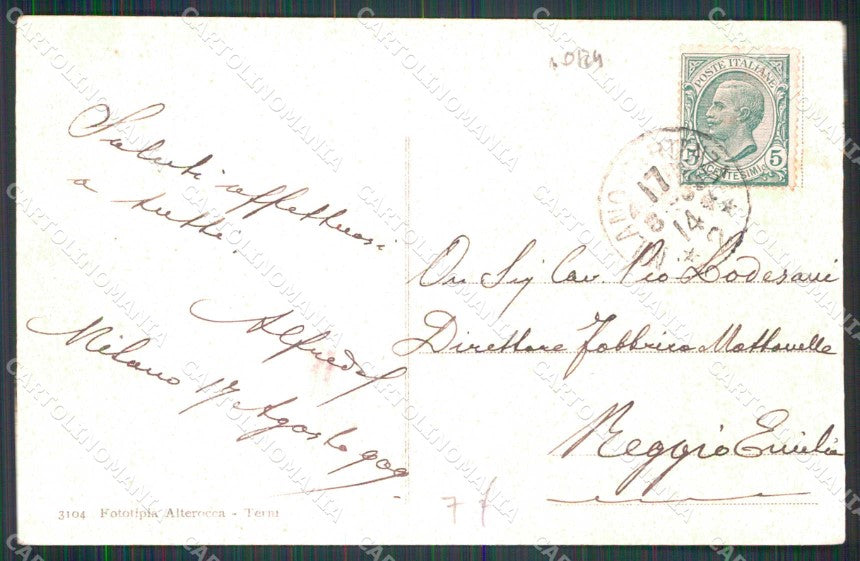 Saluti affettuosi
a tutti.
Alfredo
Milano 17 Agosto 909
3104 Fototipia Alterocca - Terni
POSTE ITALIANE
5 5
CENTESIMI
MILANO
17
8
14
On Sig Cav. Pio Lodesani
Direttore Fabbrica Mattonelle
Reggio Emilia
77
CARTOLINOMANIA